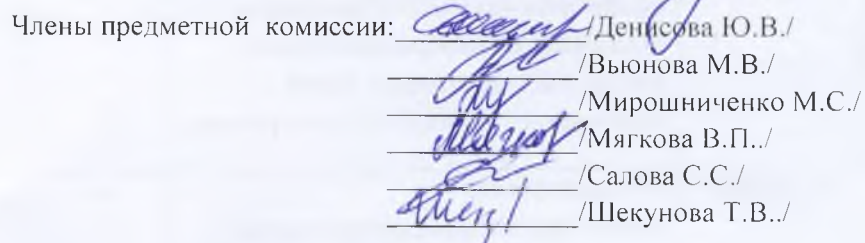 Члены предметной комиссии: /Денисова Ю.В./
/Вьюнова М.В./
/Мирошниченко М.С./
/Мягкова В.П../
/Салова С.С./
/Шекунова Т.В../